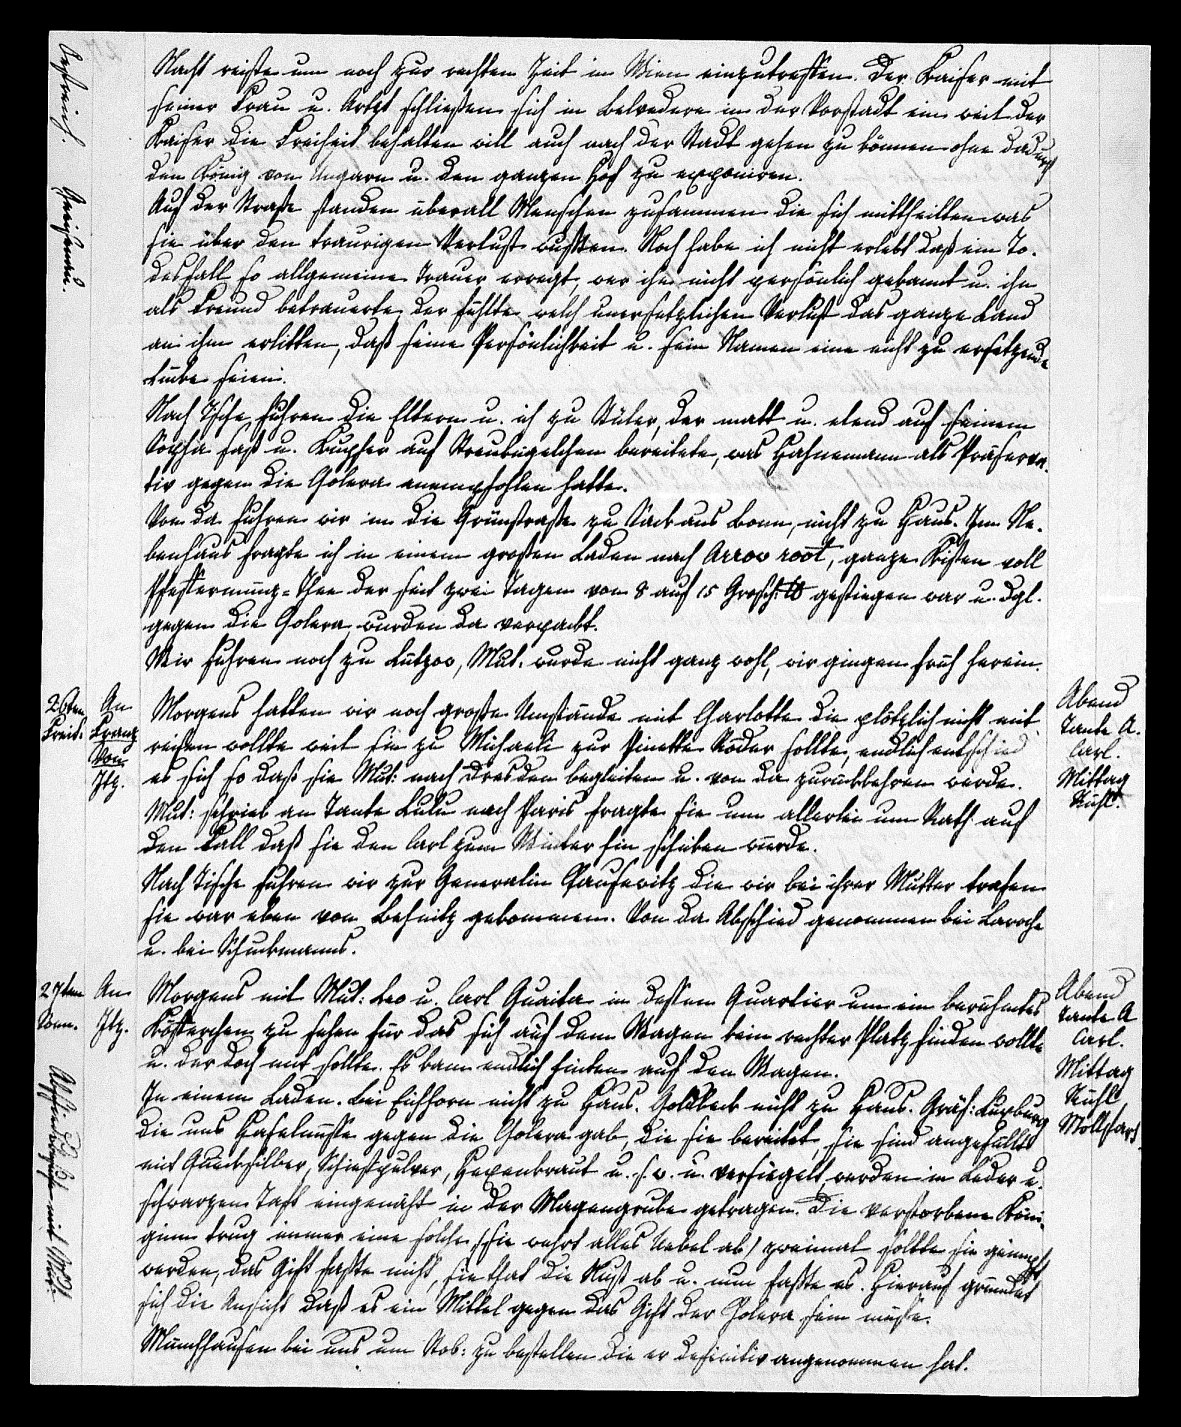 Nacht reiste um noch zur rechten Zeit in Wien einzutreffen. Der Kaiser mit
seiner Frau u. Artzt schließen sich in Belvedere in der Vorstadt ein weil der
Kaiser die Freiheit behalten will auch nach der Stadt gehen zu können ohne dadurch
den König von Ungarn u. den ganzen Hof zu exponiren.
Auf der Straße standen überall Menschen zusammen die sich mittheilten was
sie über den traurigen Verlust wußten. Noch habe ich nicht erlebt daß ein To-
desfall so allgemeine Trauer erregt, wer ihn nicht persönlich gekannt u. ihn
als Freund betrauerte der fühlte welch unersetzlichen Verlust das ganze Land
an ihm erlitten, daß seine Persönlichkeit u. sein Namen eine nicht zu ersetzende
Lücke seien.
Nach Tische fuhren die Eltern u. ich zu Stüler, der matt u. elend auf seinem
Sopha saß u. Kupfer auf Streukügelchen bereitete, was Hahnemann als Präserva-
tiv gegen die Colera anempfohlen hatte.
Von da fuhren wir in die Grünstraße zu Sack aus Bonn, nicht zu Haus. Im Ne-
benhaus fragte ich in einem großen Laden nach Arrow root, ganze Kisten voll
Pfeffermünz-Thee der seit zwei Tagen von 8 auf 15 Grosch: ℔ gestiegen war u. dgl.
gegen die Colera wurden da verpackt.
Wir fuhren noch zu Lützow, Mut. wurde nicht ganz wohl, wir gingen früh herein.
26ten
Freit:
An
Franz
von
Itz.
Morgens hatten wir noch große Umstände mit Charlotte die plötzlich nicht mit
reisen wollte weil sie zu Michaeli zur Pinette Röder sollte, endlich entschied
es sich so daß sie Mut: nach Dresden begleiten u. von da zurückkehren werde.
Mut: schrieb an Tante Lulu nach Paris fragte sie um allerlei um Rath auf
den Fall daß sie den Carl zum Winter hin schicken würde.
Nach Tische fuhren wir zur Generalin Clausewitz die wir bei ihrer Mutter trafen
sie war eben von Besnitz gekommen. Von da Abschied genommen bei Laroche
u. bei Schuckmanns.
Abend
Tante A.
Carl.
Mittag
Rühl.
27ten
Sonn.
An
Itz.
Morgens mit Mut: Leo u. Carl Quaita in dessen Quartier um ein berühmtes
Köfferchen zu sehen für das sich auf dem Wagen kein rechter Platz finden wollte
u. der doch mit sollte. Es kam endlich hinten auf den Wagen.
In einem Laden. Bei Eichhorn nicht zu Haus. Goldbeck nicht zu Haus. Gräf: Luxburg
die uns Haselnüsse gegen die Colera gab, die sie bereitet, sie sind angefüllt
mit Quecksilber, Schießpulver, Hexenkraut u. s. w. u. versiegelt, werden in Leder u.
schwarzen Taft eingenäht in der Magengrube getragen. Die verstorbene Köni-
ginn trug immer eine solche, (sie wehrt alles Uebel ab) zweimal sollte sie geimpft
werden, das Gift faßte nicht, sie that die Nuß ab u. nun faßte es. Hierauf gründet
sich die Ansicht daß es ein Mittel gegen das Gift der Colera sein müsse.
Münchhausen bei uns um Rob: zu bestellen die er definitiv angenommen hat.
Abend
Tante A
Carl.
Mittag
Rühl
Wollfart